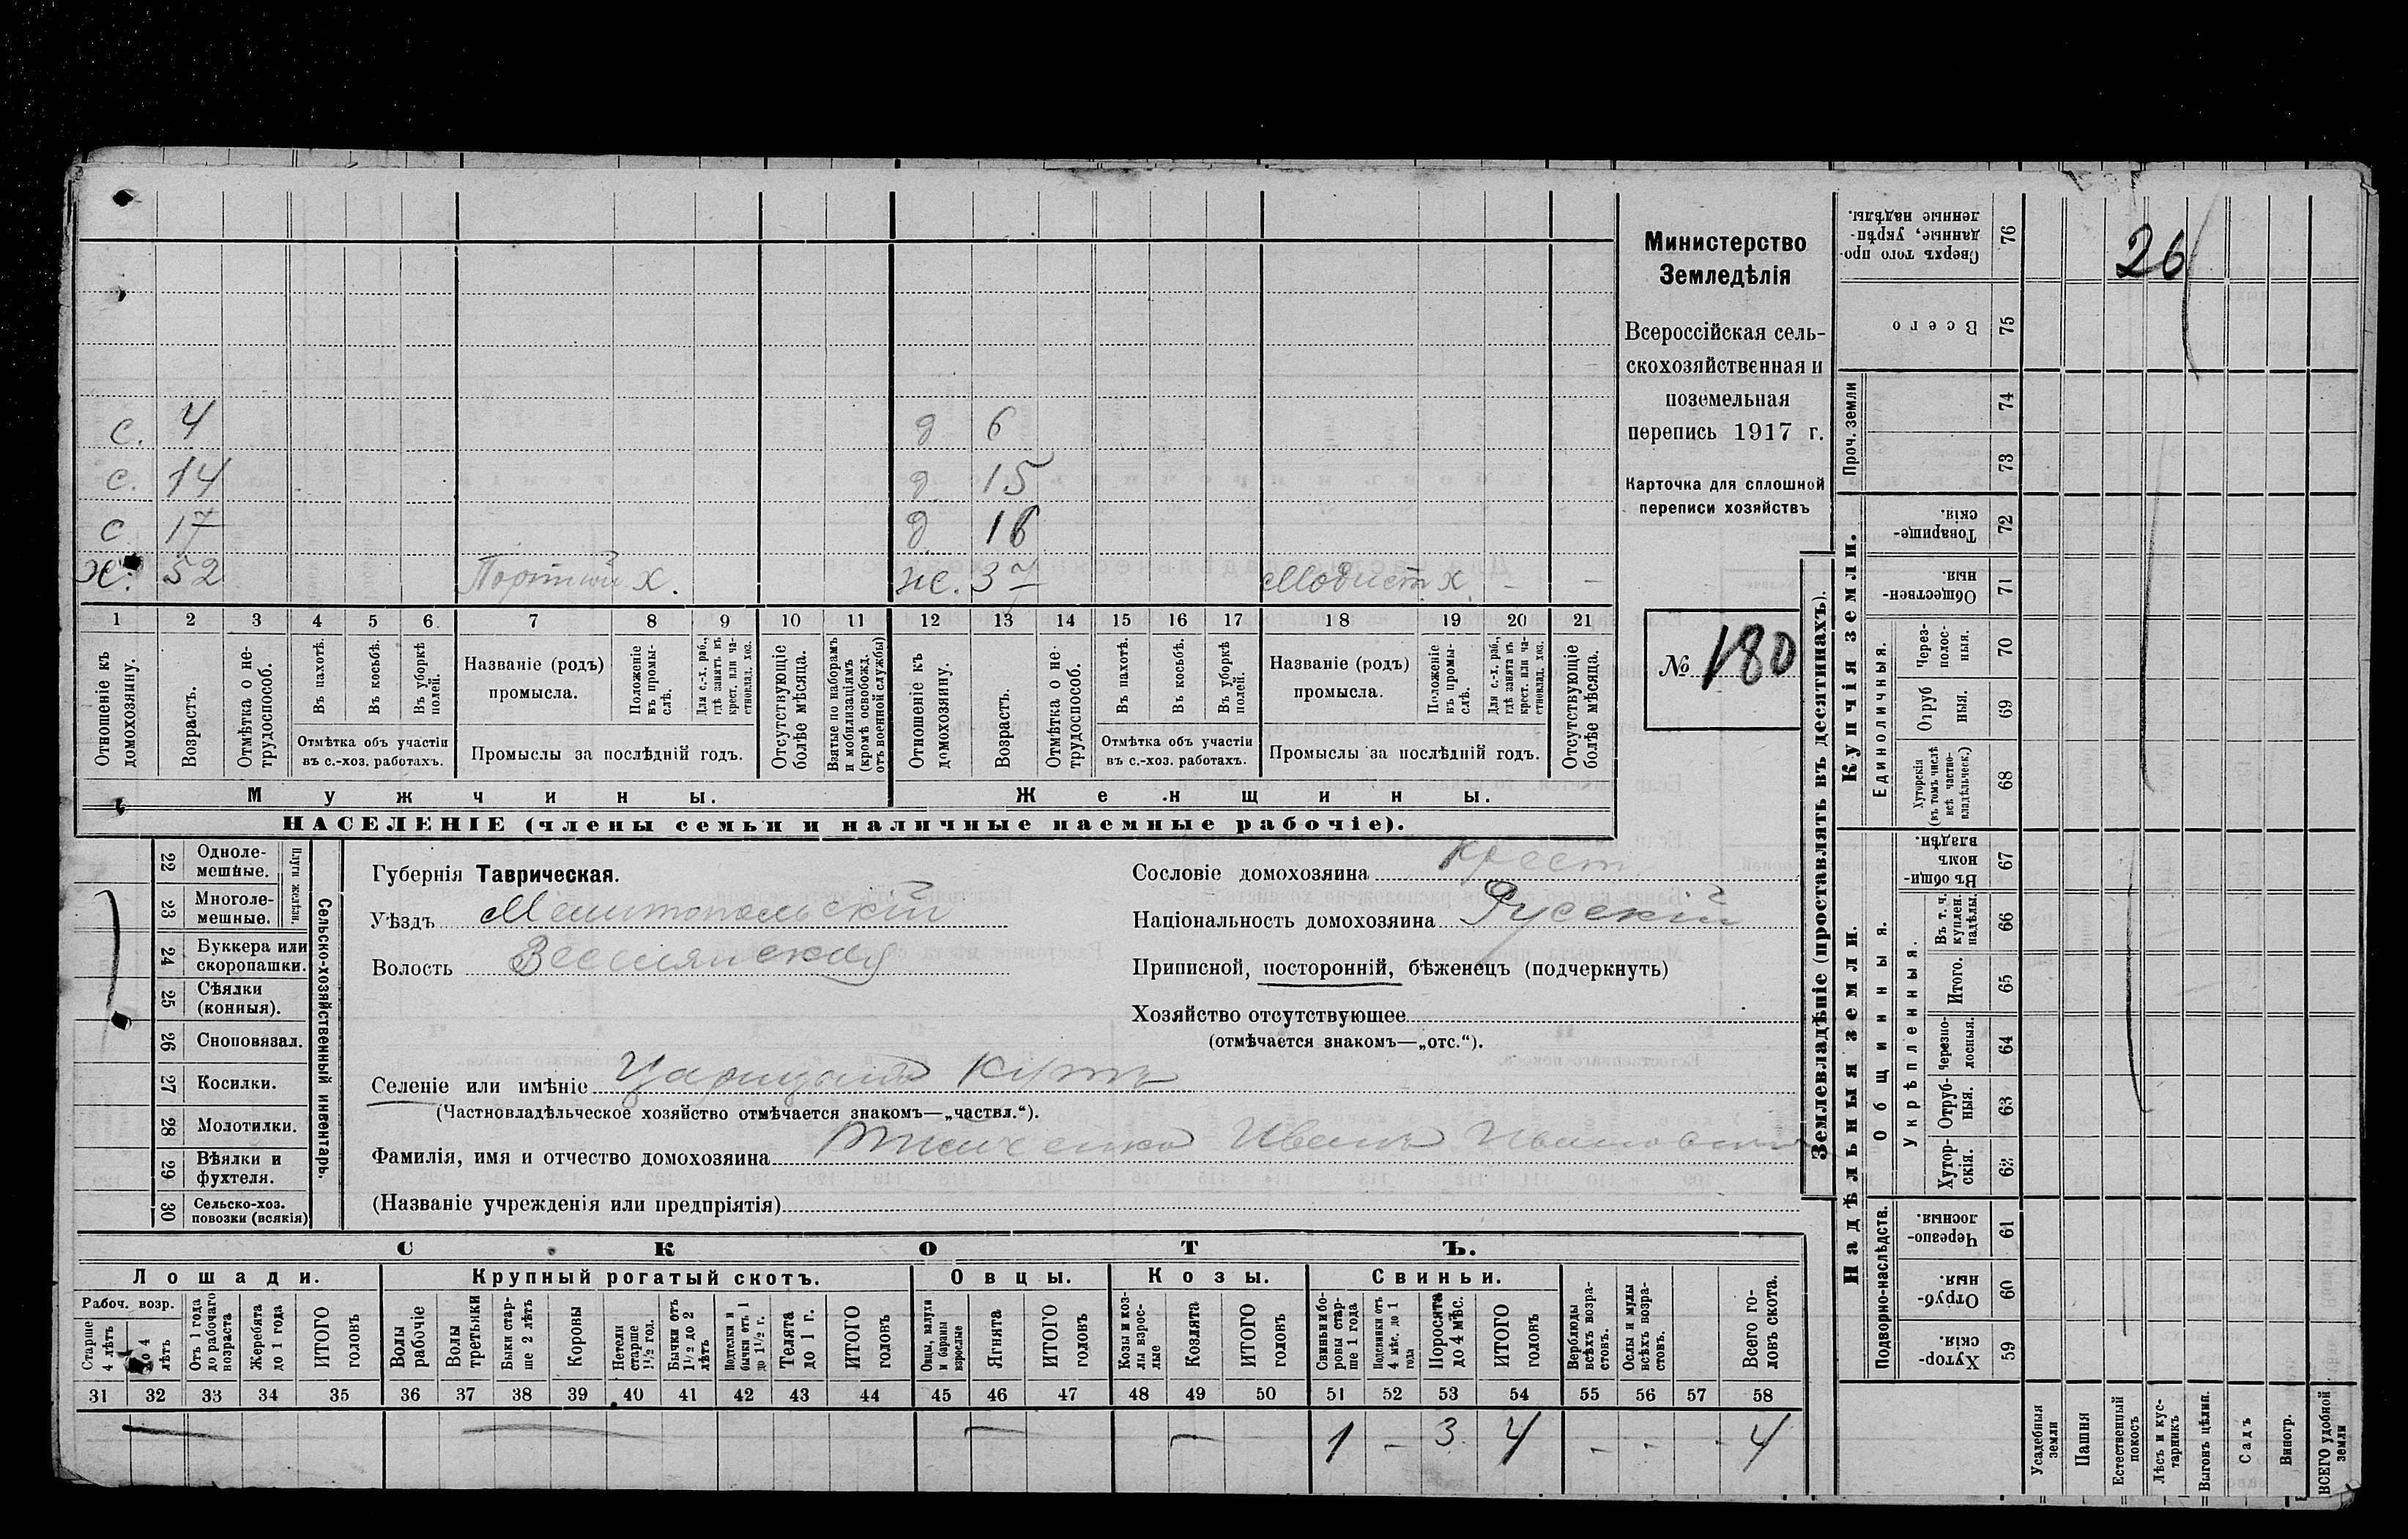 с. 4 д 6
с. 14 д. 15
с 17 д. 16
х. 52 Портной х. ж. 37 Модист. х. - -
1 2 3 4 5 6 7 8 9 10 11 12 13 14 15 16 17 18 19 20 21
Отношеніе къ домохозяину.
Возрастъ.
Отмѣтка о нетрудоспособ.
Въ пахотѣ.
Въ косьбѣ.
Въ уборкѣ полей.
Отмѣтка объ участіи въ с.-хоз. работахъ.
Названіе (родъ) промысла.
Положеніе въ промыслѣ.
Для с.-х. раб., гдѣ занятъ въ крест. или частновлад. хоз.
Промыслы за послѣдній годъ.
Отсутствующіе болѣе мѣсяца.
Взятые по наборамъ и мобилизаціямъ (кромѣ освобожд. отъ военной службы)
Отношеніе къ домохозяину.
Возрастъ.
Отмѣтка о нетрудоспособ.
Въ пахотѣ.
Въ косьбѣ.
Въ уборкѣ полей.
Отмѣтка объ участіи въ с.-хоз. работахъ.
Названіе (родъ) промысла.
Положеніе въ промыслѣ.
Для с.-х. раб., гдѣ занята въ крест. или частновлад. хоз.
Промыслы за послѣдній годъ.
Отсутствующіе болѣе мѣсяца.
Мужчины.
Женщины.
НАСЕЛЕНІЕ (члены семьи и наличные наемные рабочіе).
Министерство
Земледѣлія
Всероссійская сель-
скохозяйственная и
поземельная
перепись 1917 г.
Карточка для сплошной
переписи хозяйствъ
№ 180
Сельско-хозяйственный инвентарь.
Плуги желѣзн.
22 Однолемешные.
23 Многолемешные.
24 Буккера или скоропашки.
25 Сѣялки (конныя).
26 Сноповязал.
27 Косилки.
28 Молотилки.
29 Вѣялки и фухтеля.
30 Сельско-хоз. повозки (всякія)
Губернія Таврическая.
Уѣздъ Мелитопольскій
Волость Веселянская
Сословіе домохозяина Крест.
Національность домохозяина Русскій
Приписной, посторонній, бѣженецъ (подчеркнуть)
Хозяйство отсутствующее
(отмѣчается знакомъ—„отс.“).
Селеніе или имѣніе
(Частновладѣльческое хозяйство отмѣчается знакомъ—„частвл.“).
Фамилія, имя и отчество домохозяина Иванъ Ивановичъ
(Названіе учрежденія или предпріятія)
СКОТЪ.
Лошади. Крупный рогатый скотъ. Овцы. Козы. Свиньи.
Рабоч. возр.
Старше 4 лѣтъ
До 4 лѣтъ
Отъ 1 года до рабочаго возраста
Жеребята до 1 года
ИТОГО головъ
Волы рабочіе
Волы третьяки
Быки старше 2 лѣтъ
Коровы
Нетели старше 1½ год.
Бычки отъ 1½ до 2 лѣтъ
Подтелки и бычки отъ 1 до 1½ г.
Телята до 1 г.
ИТОГО головъ
Овцы, валухи и бараны взрослые
Ягнята
ИТОГО головъ
Козы и козлы взрослые
Козлята
ИТОГО головъ
Свиньи и боровы старше 1 года
Подсвинки отъ 4 мѣс. до 1 года
Поросята до 4 мѣс.
ИТОГО головъ
Верблюды всѣхъ возрастовъ.
Ослы и мулы всѣхъ возрастовъ.
Всего головъ скота.
31 32 33 34 35 36 37 38 39 40 41 42 43 44 45 46 47 48 49 50 51 52 53 54 55 56 57 58
1 - 3 4 - - - 4
Землевладѣніе (проставлять въ десятинахъ).
Купчія земли.
Надѣльныя земли.
Сверхъ того проданные, укрѣпленные надѣлы. 76
26
Всего 75
Проч. земли 74
73
Товарищескія. 72
Общественныя. 71
Единоличныя.
Черезполосныя. 70
Отрубныя. 69
Хуторскія (въ томъ числѣ всѣ частновладѣльческ.) 68
Общинныя.
Въ общинномъ владѣн. 67
Укрѣпленныя.
Въ т. ч. куплен. надѣлы. 66
Итого. 65
Черезполосныя. 64
Отрубныя. 63
Хуторскія. 62
Подворно-наслѣдств.
Черезполосныя. 61
Отрубныя. 60
Хуторскія. 59
Усадебныя земли
Пашня
Естественный покосъ
Лѣсъ и кустарникъ
Выгонъ цѣлин.
Садъ
Виногр.
ВСЕГО удобной земли